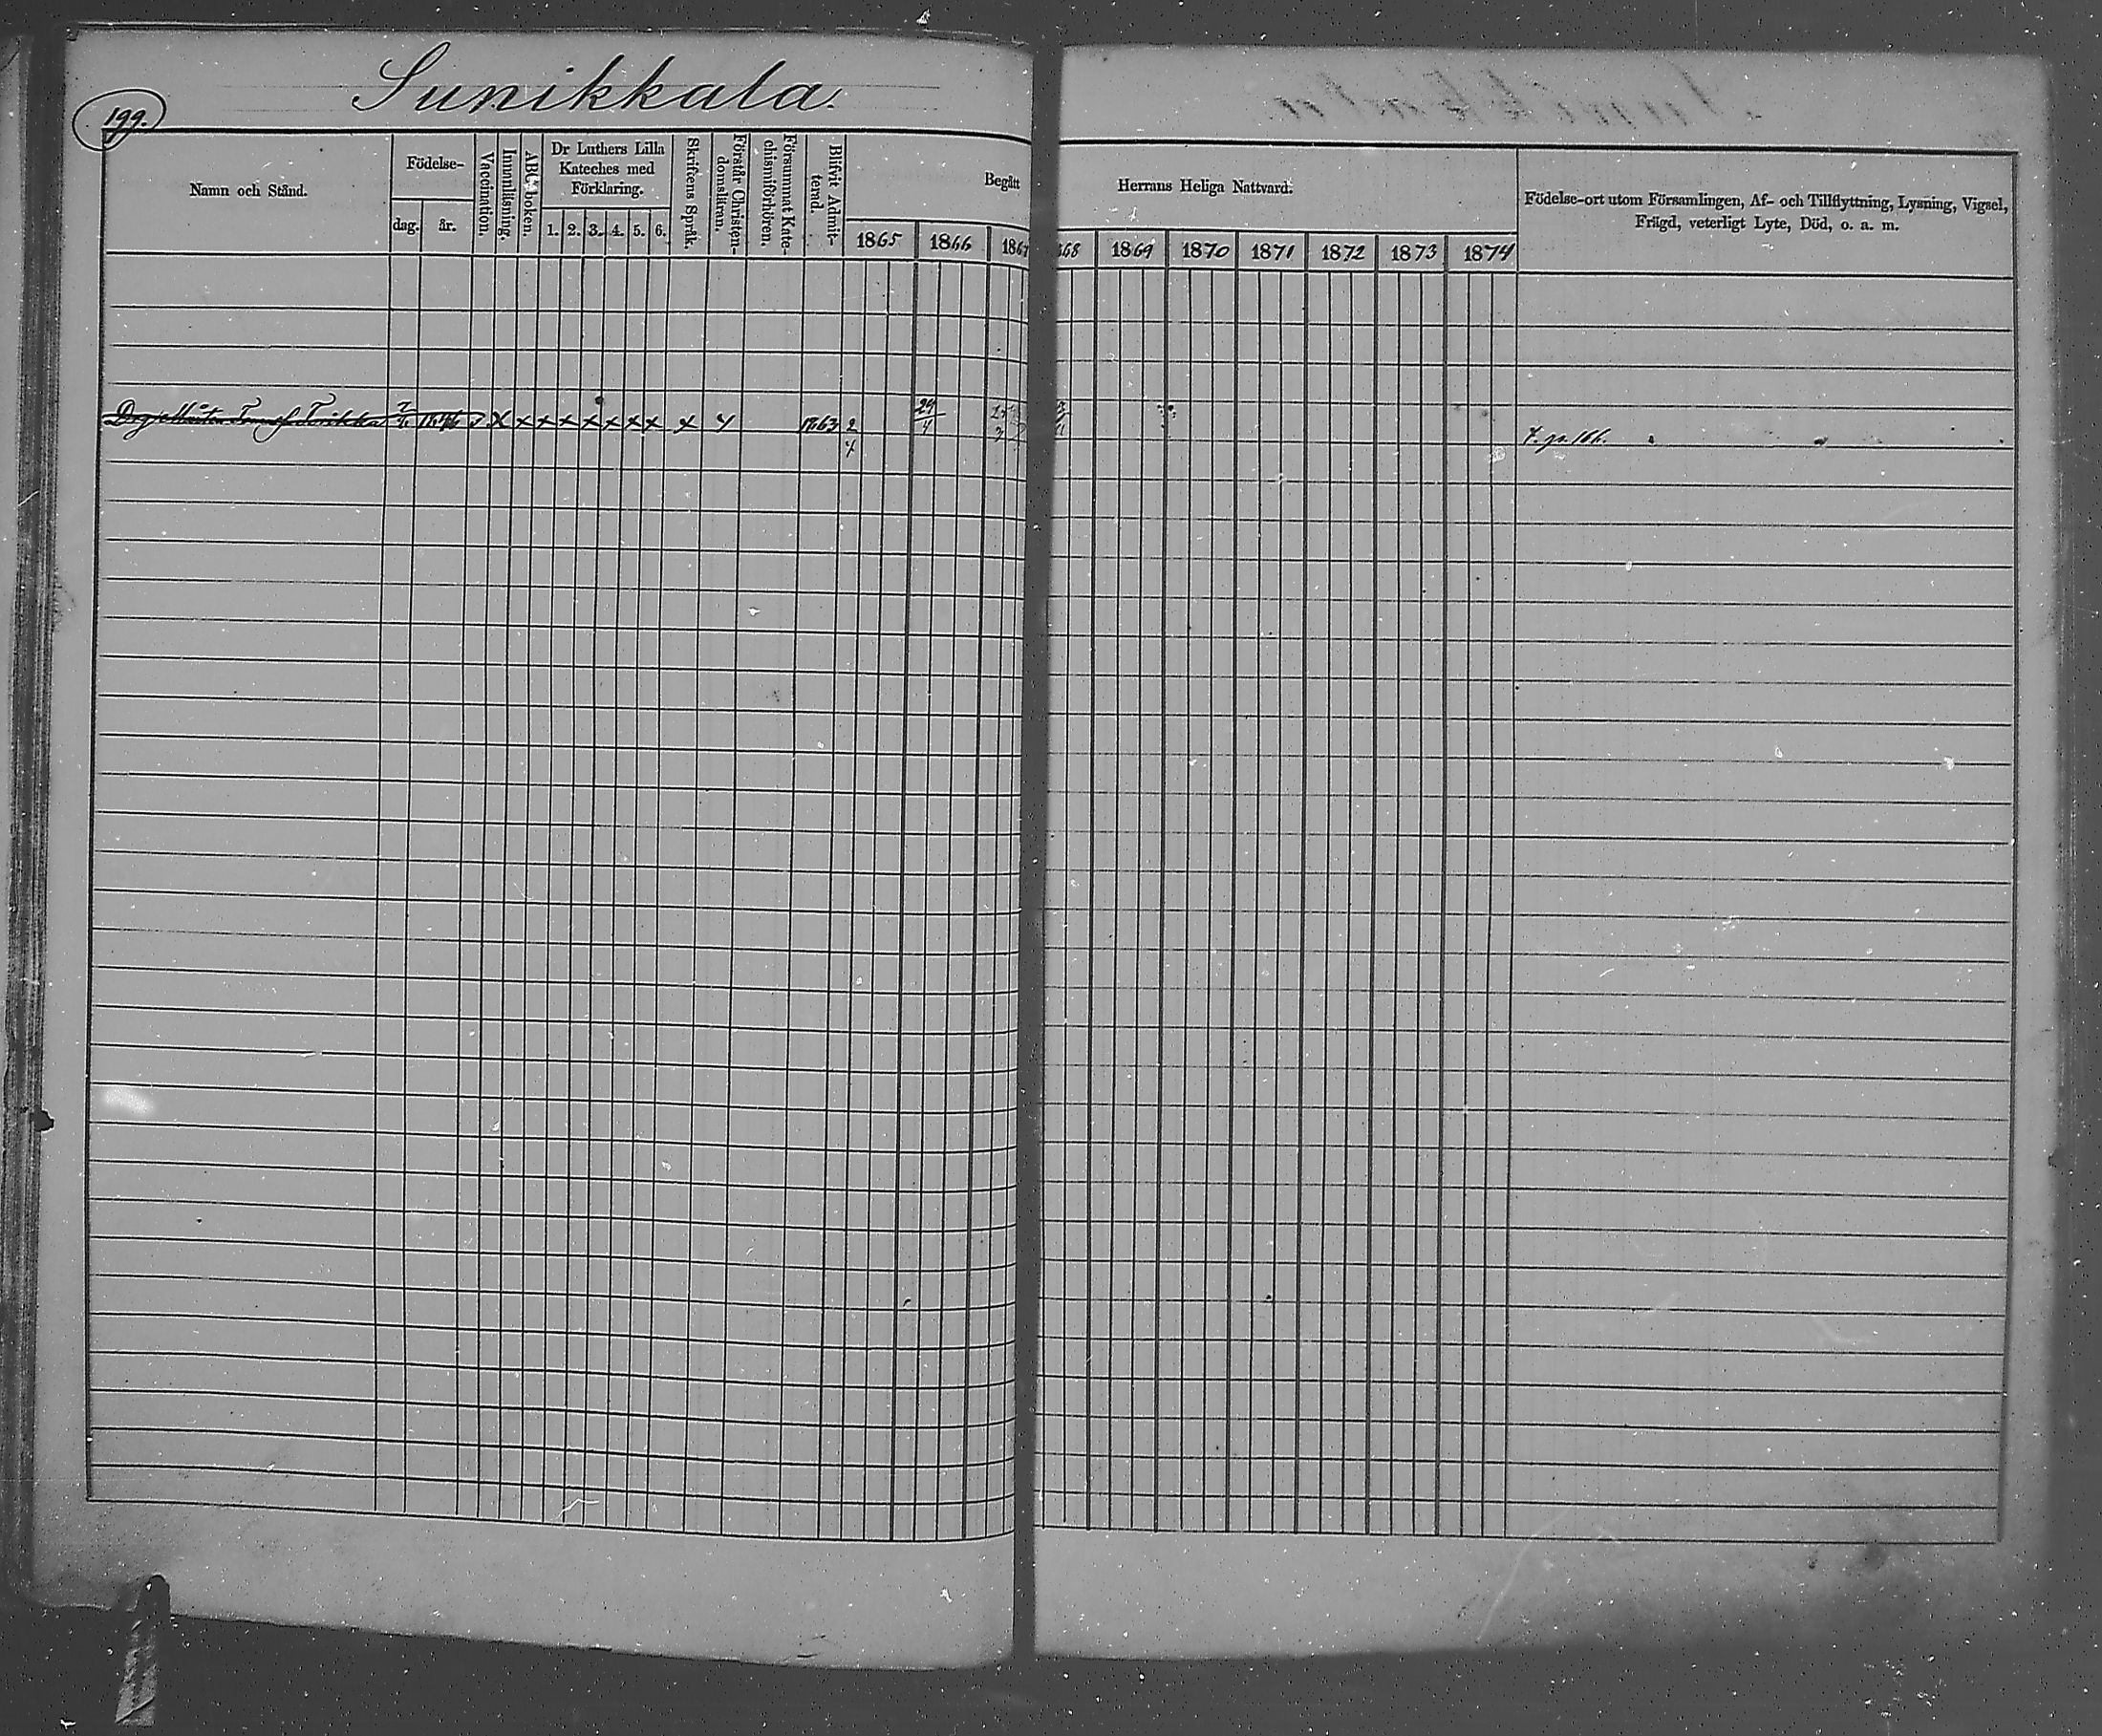 Sunikkala.
199.
Namn och Stånd.
Födelse-
dag.
år.
Vaccination.
Innanläsning.
ABC-boken.
Dr Luthers Lilla
Kateches med
Förklaring.
1. 2. 3. 4. 5. 6.
Skriftens Språk.
Förstår Christen-
domsläran.
Försummat Kate-
chismiförhören.
Blifvit Admit-
terad.
Begått
Herrans Heliga Nattvard.
1865 1866 1867 1869 1870 1871 1872 1873 1874
Födelse-ort utom Församlingen, Af- och Tillflyttning, Lysning, Vigsel,
Frägd, veterligt Lyte, Död, o. a. m.
x x x x x x x x x 1863 2
24